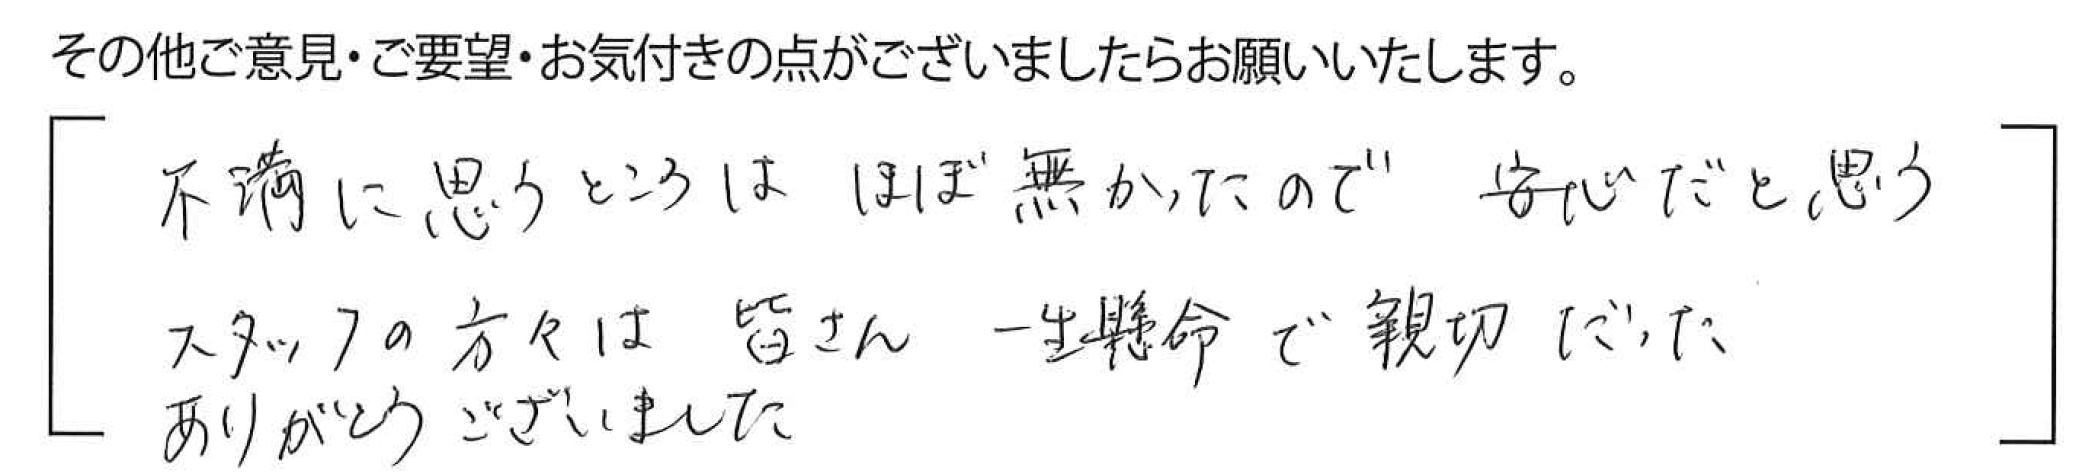 その他ご意見・ご要望・お気付きの点がございましたらお願いいたします。
不満に思うところは ほぼ無かったので 安心だと思う
スタッフの方々は 皆さん 一生懸命で親切だった
ありがとうございました